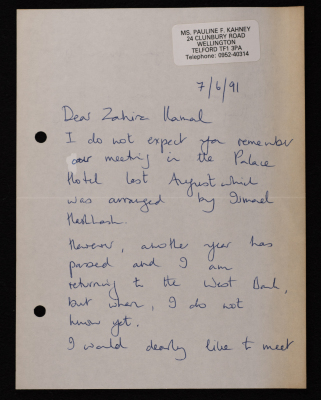 MS. PAULINE F. KAHNEY
24 CLUNBURY ROAD
WELLINGTON
TELFORD TF1 3PA
Telephone: 0952-40314
7/6/91
Dear Zahira Kamal
I do not expect you remember
our meeting in the Palace
Hotel last August which
was arranged by Ismael
However, another year has
passed and I am
returning to the West Bank,
but when, I do not
know yet.
I would dearly like to meet